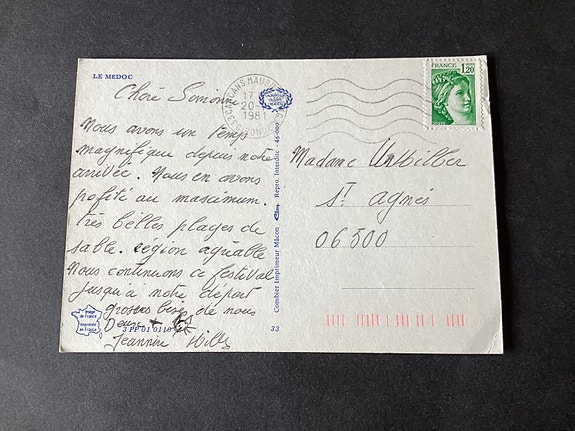 LE MEDOC
Chère Simonne
Nous avons un temps
magnifique depuis notre
arrivée. Nous en avons
profité au mascimum.
très belles plages de
sable. région agréable
Nous continuons ce festival
jusqu'à notre départ
grosses bises de nous
Deux
Jeannine Willy
Image
de France
Imprimée
en France
3 PF 01 0110
33
Combier Imprimeur Mâcon
Repro. Interdite
46-000
33 CARCANS-MAUBUISSON
17
20-
1981
GIRONDE
FRANCE
1,20
Madame
ST agnès
06500